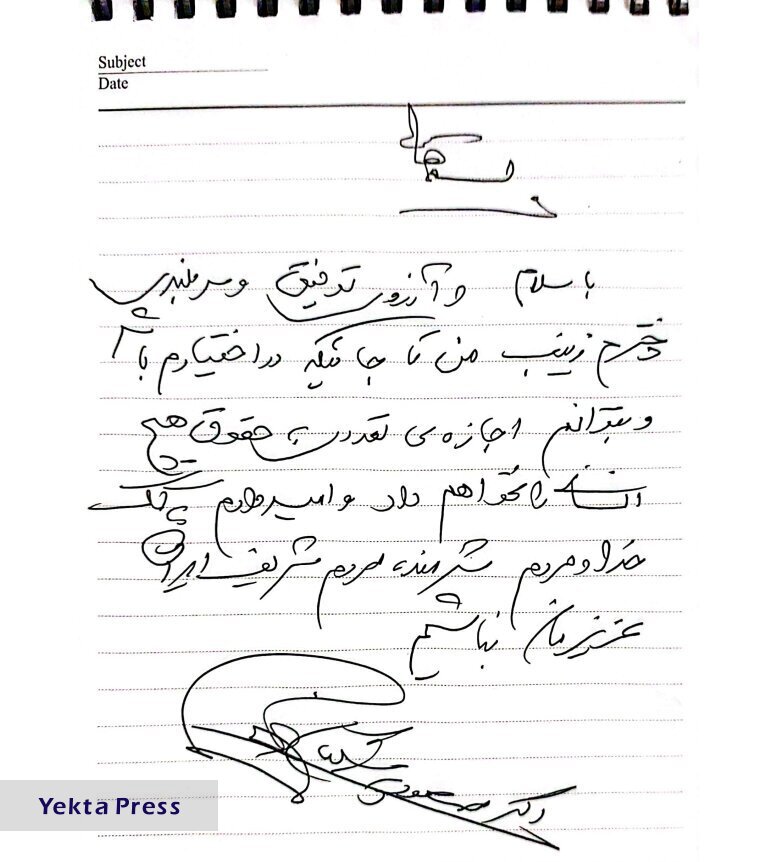 Subject
Date
با سلام و آرزوی توفیق و سربلندی
دخترم زینب من تا جائیکه در اختیارم باشد
و بتوانم اجازه‌ی تعدد به حقوق هیچ
انسانی را نخواهم داد و امیدوارم به کمک
خدا و مردم شرمنده مردم شریف ایران
عزیزمان نباشم
دکتر
Yekta Press